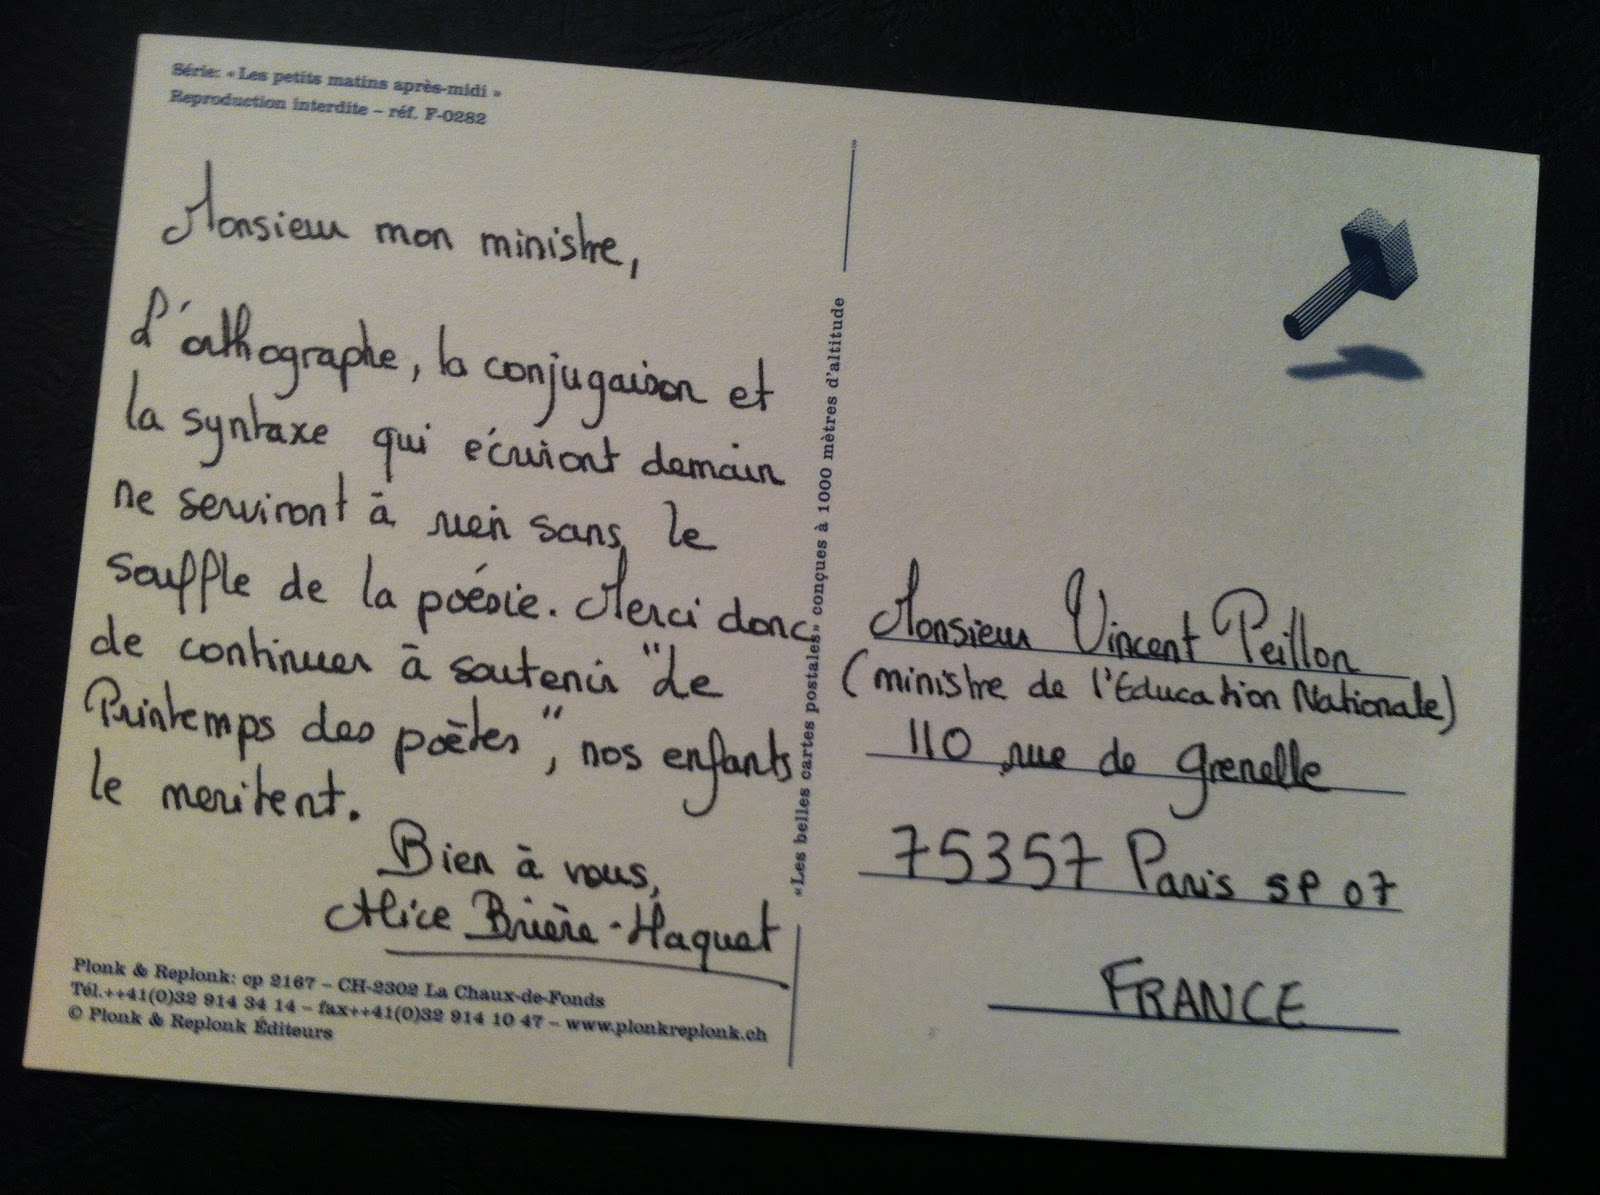 Série: « Les petits matins après-midi »
Reproduction interdite – réf. F-0282
Monsieur mon ministre,
L'orthographe, la conjugaison et
la syntaxe qui écriront demain
ne serviront à rien sans le
souffle de la poésie. Merci donc
de continuer à soutenir "Le
Printemps des poètes", nos enfants
le meritent.
Bien à vous,
Alice Brière-Haquet
Plonk & Replonk: cp 2167 – CH-2302 La Chaux-de-Fonds
Tél.++41(0)32 914 34 14 – fax++41(0)32 914 10 47 – www.plonkreplonk.ch
© Plonk & Replonk Éditeurs
«Les belles cartes postales» conçues à 1000 mètres d'altitude
Monsieur Vincent Peillon
(ministre de l'Education Nationale)
110 rue de grenelle
75357 Paris SP 07
FRANCE